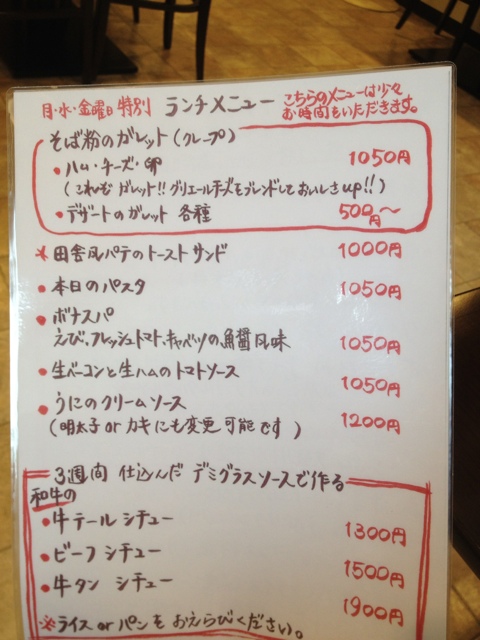 月・水・金曜日特別 ランチメニュー こちらのメニューは少々
お時間をいただきます。
そば粉のガレット(クレープ)
・ハム・チーズ・卵 1050円
(これぞガレット!!グリエールチーズをブレンドしておいしさup!!)
・デザートのガレット 各種 500円〜
*田舎風パテのトーストサンド 1000円
・本日のパスタ 1050円
・ボナスパ
えび、フレッシュトマト、キャベツの魚醤風味 1050円
・生ベーコンと生ハムのトマトソース 1050円
・うにのクリームソース 1200円
(明太子orカキにも変更可能です)
3週間 仕込んだ デミグラスソースで作る
和牛の
・牛テールシチュー 1300円
・ビーフシチュー 1500円
・牛タン シチュー 1900円
※ライスorパンをおえらびください。